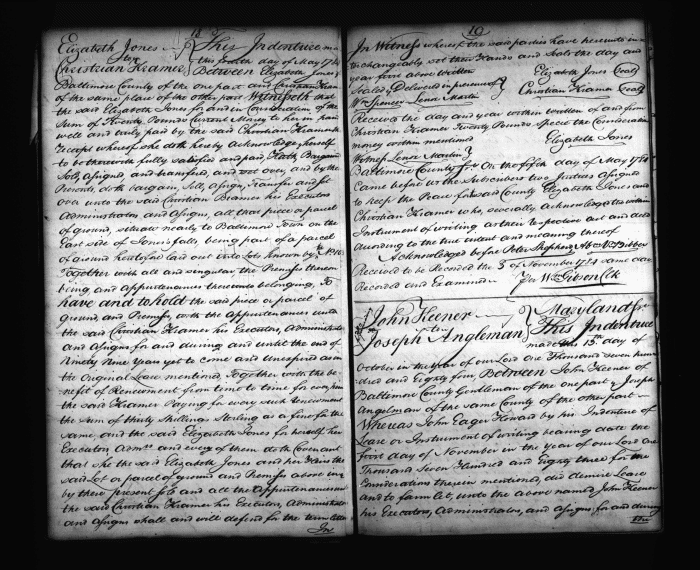 Elizabeth Jones
To
Christian Kramer
This Indenture ma
the fourth day of May 1784
Between Elizabeth Jones
Baltimore County of the one part and Christian Kram
of the same place of the other part Witnesseth that
the said Elizabeth Jones for and in Consideration of the
Sum of Twenty Pounds Current Money to her in hand
well and truly paid by the said Christian Kramer the
Receipt whereof she doth hereby Acknowledge herself
to be therewith fully satisfied and paid, Hath Bargain
Sold, Assigned, and transferred, and set over, and by these
Presents, doth bargain, Sell, Assign, Transfer and set
over unto the said Christian Kramer his Executors
Administrators and Assigns, all that piece or parcel
of ground, situate nearly to Baltimore Town on the
East side of Jones's falls, being part of a parcel
of ground heretofore laid out into Lots known by
Together with all and singular, the Premises thereon
being, and appurtenances thereunto belonging, To
have and to hold the said piece or parcel of
ground, and Premises, with the Appurtenances unto
the said Christian Kramer his Executors, Administrators
and Assigns for and during and until the end of
Ninety Nine Years yet to come and Unexpired as in
the Original Lease mentioned, Together with the be
nefit of Renewment from time to time for ever
the said Kramer Paying for every such renewment
the Sum of thirty Shillings Sterling as a fine for the
same, and the said Elizabeth Jones for herself her
Executors Admrs and every of them doth Covenant
that she the said Elizabeth Jones and her Heirs the
said Lot or parcel of ground and Premises above
by these present sets and all the Appurtenances
the said Christian Kramer his Executors, Administrators
and Assigns shall and will defend for the term
In
19
In Witness whereof the said parties have hereunto in
terchangeably set their Hands and Seals the day and
year first above written
Sealed & Delivered in presence of
Wm Spencer Lenox Martin
Elizabeth Jones (Seal)
Christian Kramer (Seal)
Received the day and year within written of and from
Christian Kramer Twenty Pounds specie the Consideration
money within mentioned
Elizabeth Jones
Witness Lenox Martin
Baltimore County Ss. On the fifth day of May 1784
Came before us the Subscribers two Justices Assigned
to keep the Peace for said County Elizabeth Jones and
Christian Kramer who, severally acknowledged the within
Instrument of writing as their respective act and deed
According to the true intent and meaning thereof
Acknowledged before Peter Shepherd,
Received to be Recorded the 3 of November 1784 same day
Recorded and Examined
Wm Gibson Clk
John Keener
to
Joseph Angleman
Maryland Ss.
This Indenture
made this 13th day of
October in the year of our Lord One Thousand Seven hun
dred and Eighty four Between John Keener of
Baltimore County Gentleman of the one part & Joseph
Angelman of the same County of the other part
Whereas John Eager Howard by his Indenture of
Lease or Instrument of writing bearing date the
First day of November in the year of our Lord One
Thousand Seven Hundred and Eighty three for the
Considerations therein mentioned, did demise Lease
and to farm let, unto the above named John Keener
his Executors, Administrators, and Assigns, for and during